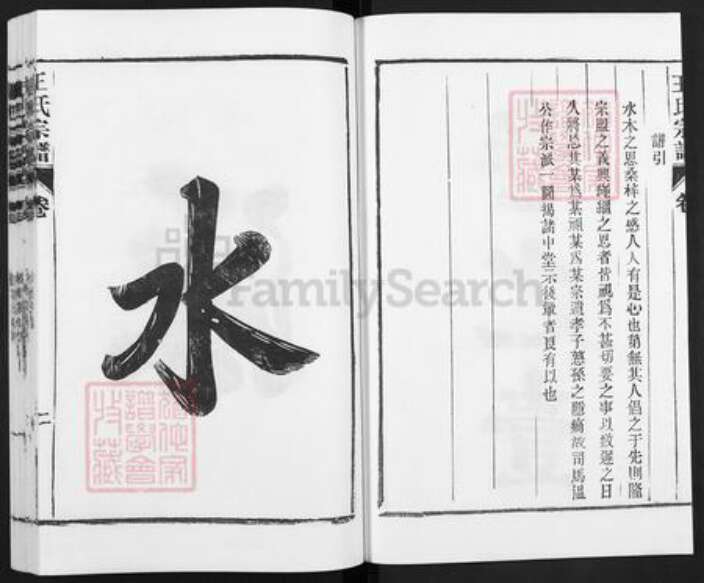 王氏宗譜
譜引
水木之思桑梓之感人人有是心也第無其人倡之于先則隆
宗盟之義興 之思者皆視爲不甚切要之事以致遲之日
久將恐其某爲某頑某爲某宗遺孝子慈孫之隱痛故司馬溫
公作宗派一圖揭諸中堂示後輩者良有以也
水
王氏宗譜
卷
二
譜學會
收藏
FamilySearch